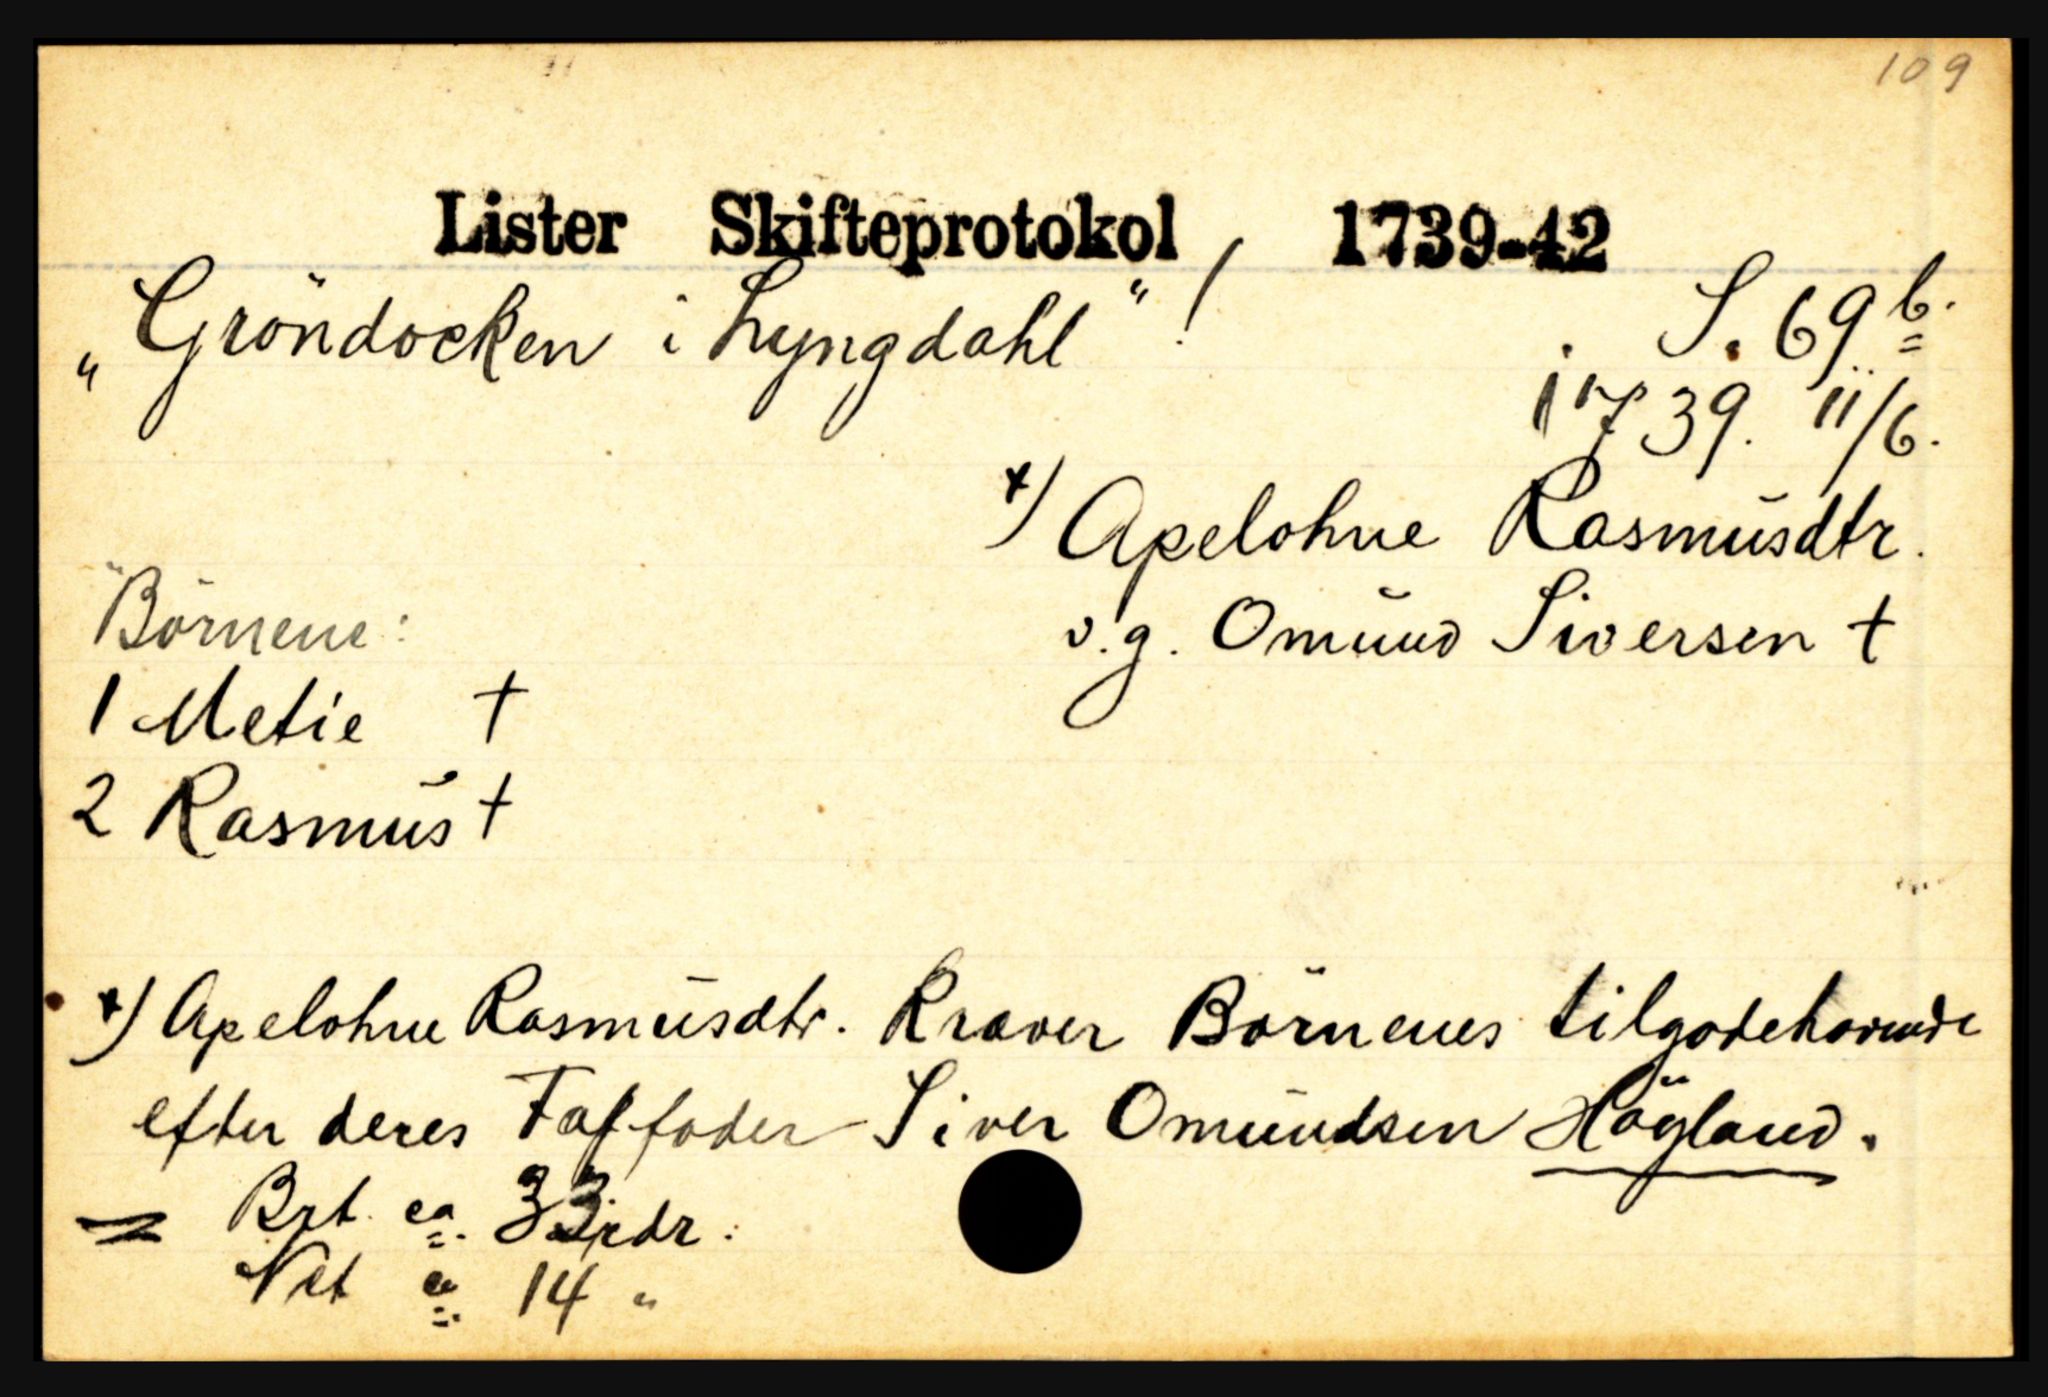 109
Lister Skifteprotokol 1739-42
„Gröndocken i Lyngdahl“!
S. 69 b.
1739. 11/6.
*) Apelohne Rasmusdtr.
v.g. Omund Siversen †
Börnene:
1 Metie †
2 Rasmus †
*) Apelohne Rasmusdtr. Kræver Börnenes tilgodehavende
efter deres Farfader Siver Omundsen Högland.
= Brt. ca. 33 rdr.
Net ca. 14 "